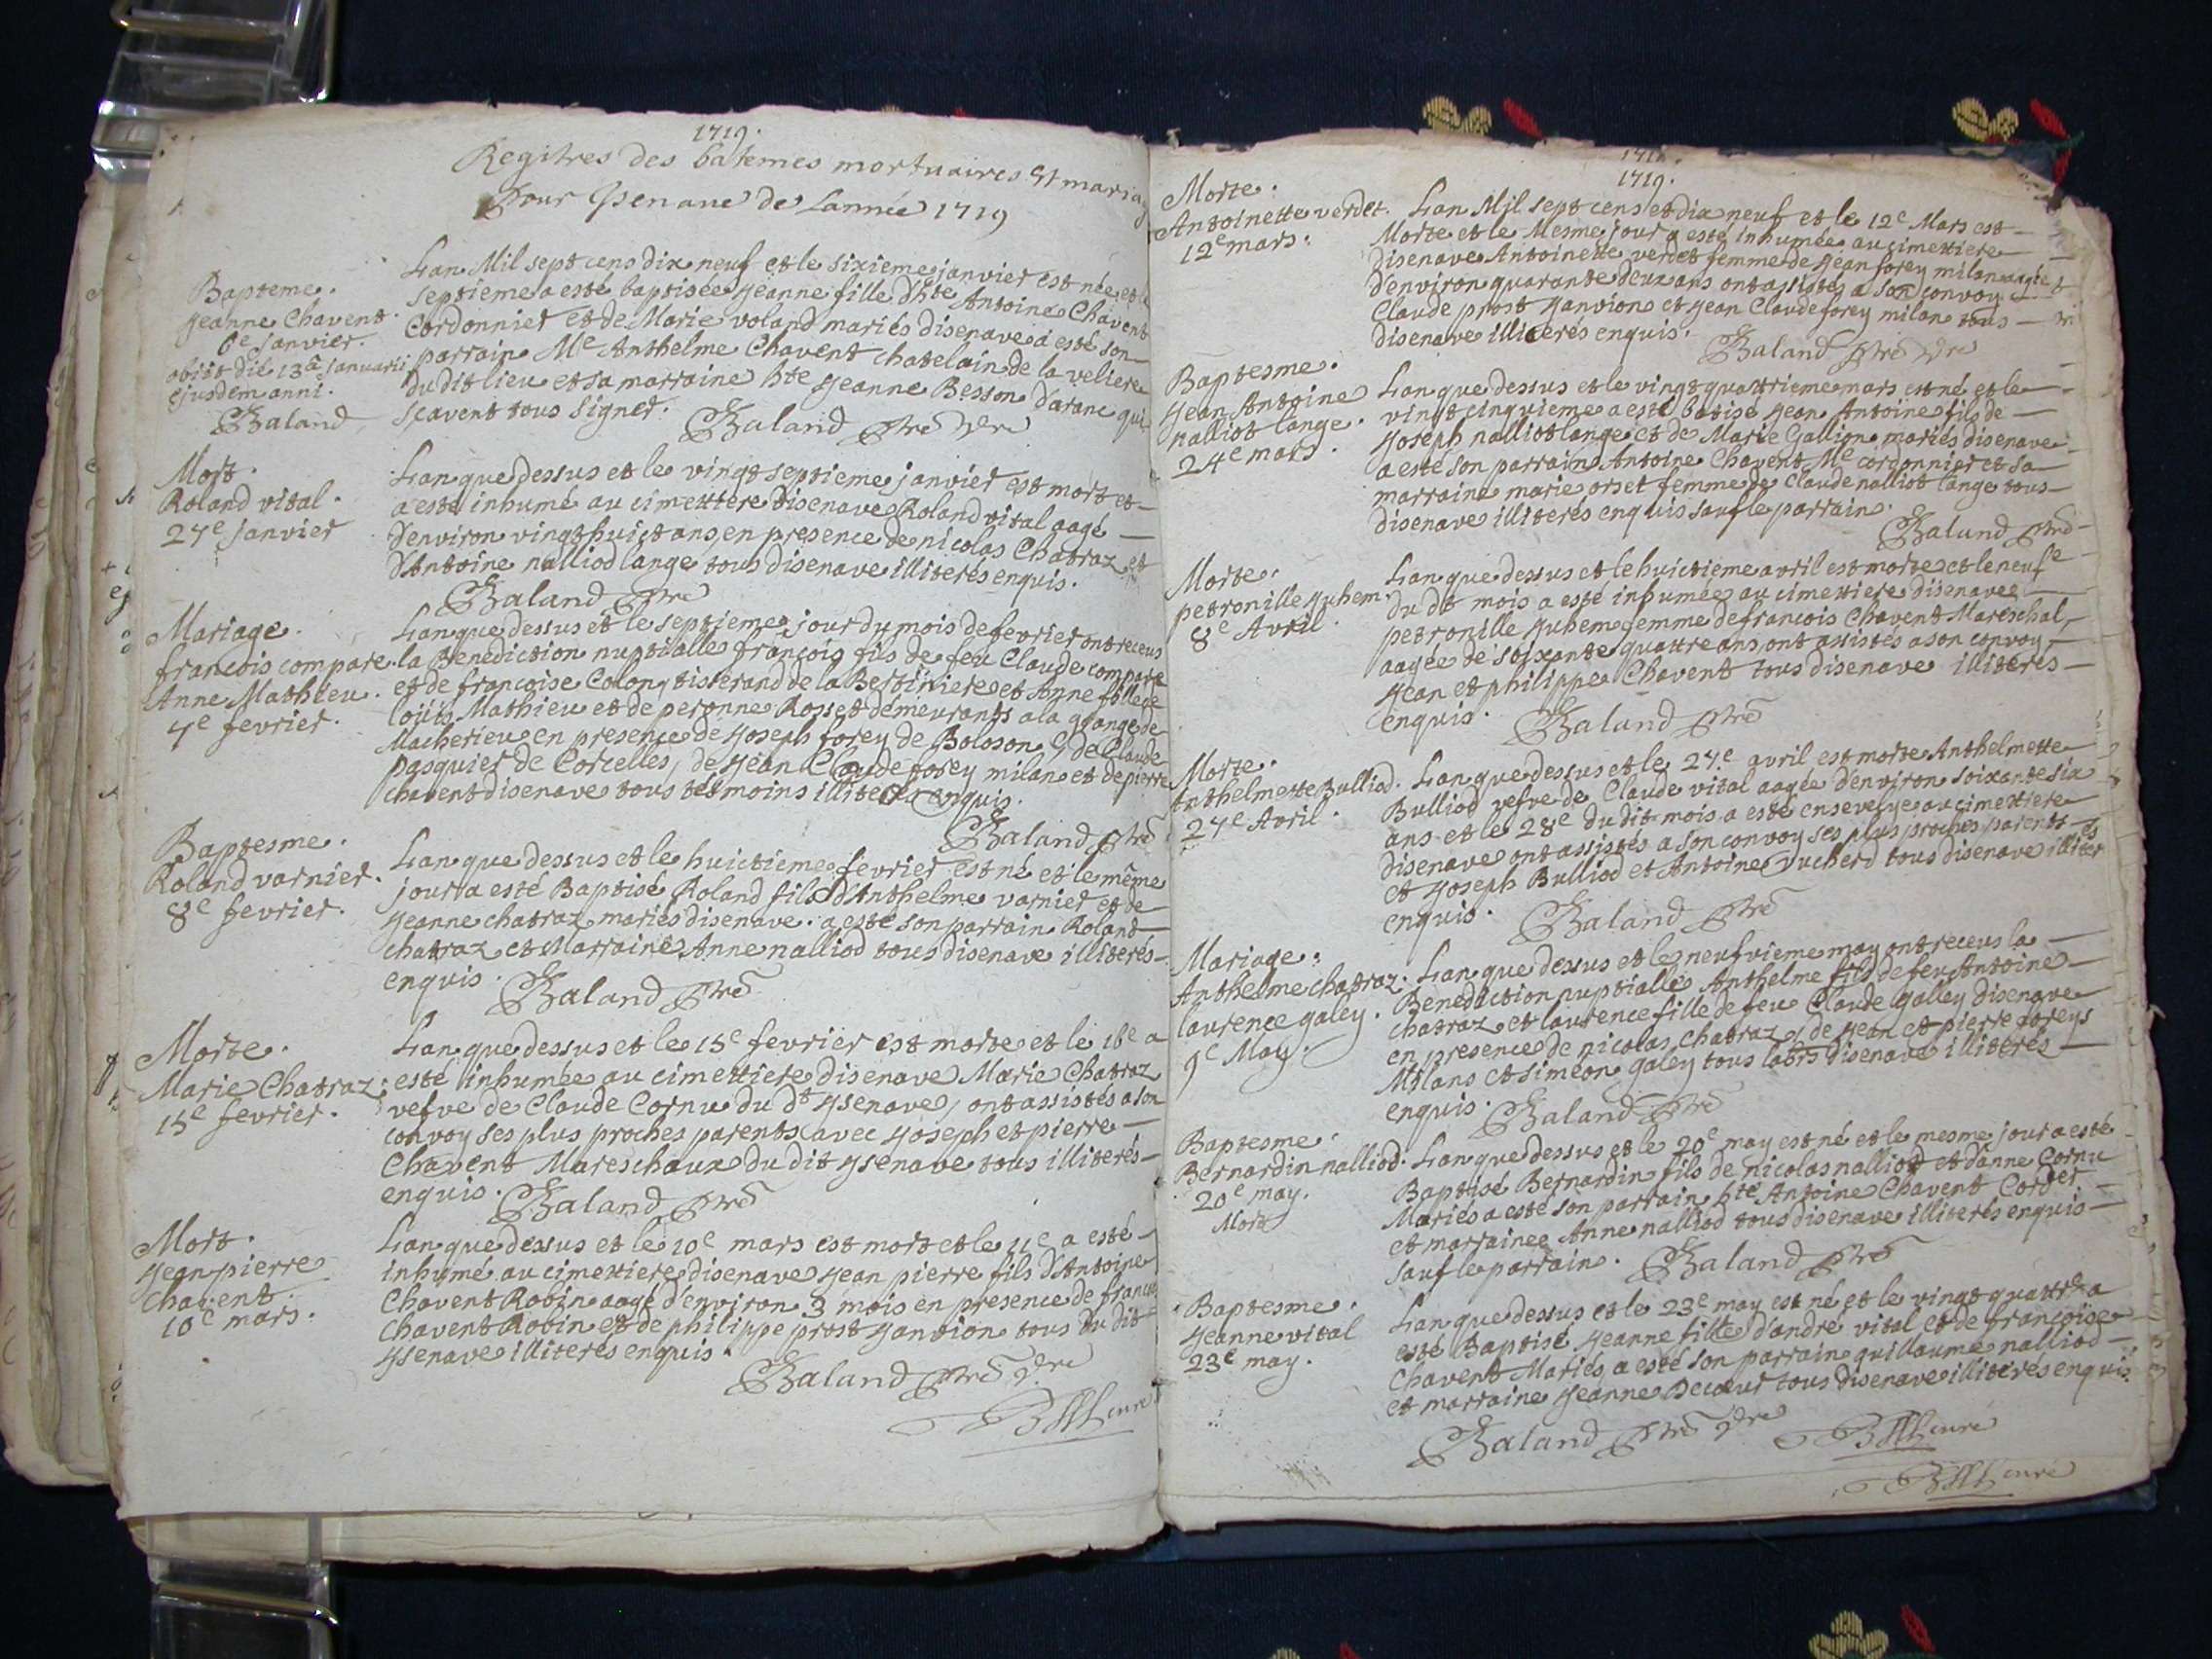 1719.
Regitres des batemes mortuaires et mariag
Pour Jsenave de Lannée 1719
Bapteme.
Jeanne Chavent.
6e janvier.
obiit die 13a januarii
ejusdem anni.
Baland
Lan Mil sept cens dix neuf et le sixieme janvier est née et le
septieme a esté baptisée Jeanne fille d'hte Antoine Chavent
Cordonnier et de Marie voland mariés disenave a esté son
parrain Me Anthelme Chavent chatelain de la veliere
du dit lieu et sa marraine hte Jeanne Besson daranc qui
scavent tous signer. Baland ptre vre
Mort.
Roland vital.
27e janvier
Lan que dessus et le vingt septieme janvier est mort et
a esté inhumé au cimettiere disenave Roland vital aagé
d'environ vingt huict ans, en presence de nicolas Chatraz et
d'Antoine nalliod lange tous disenave illiterés enquis.
Baland ptre
Mariage.
francois compare.
Anne Mathieu.
7e fevrier.
Lan que dessus et le septieme jour du mois de fevrier ont receus
la Benediction nuptialle françois fils de feu Claude compare
et de francoise Colony tisserand de la Bertiniere et Anne fille de
loüis Mathieu et de peronne Rosset demeurants a la grange de
Macherieu en presence de Joseph forey de Boloson, de Claude
pasquier de Corcelles, de Jean Claude forey milan et de pierre
chavent disenave tous tesmoins illiterés enquis.
Baland ptre
Baptesme.
Roland varnier.
8e fevrier.
Lan que dessus et le huictieme fevrier est né et le même
jour a esté Baptisé Roland fils d'Anthelme varnier et de
Jeanne chatraz mariés disenave. a esté son parrain Roland
chatraz et Marraine Anne nalliod tous disenave illiterés
enquis. Baland ptre
Morte.
Marie Chatraz.
15e fevrier.
Lan que dessus et le 15e fevrier est morte et le 16e a
esté inhumée au cimettiere disenave Marie Chatraz
vefve de Claude Cornu du dt Jsenave, ont assistés a son
convoy ses plus proches parents avec Joseph et pierre
Chavent Mareschaux du dit Jsenave tous illiterés
enquis. Baland ptre
Mort.
Jean pierre
chavent.
10e mars.
Lan que dessus et le 10e mars est mort et le 11e a esté
inhumé au cimettiere disenave Jean pierre fils d'Antoine
Chavent Robin aagé d'environ 3 mois en presence de francois
chavent Robin et de philippe prost Janvion tous du dit
Jsenave illiterés enquis.
Baland ptre vre
curé
1719.
Morte.
Antoinette verdet.
12e mars.
Lan Mil sept cens et dix neuf et le 12e Mars est
Morte et le Mesme jour a esté inhumée au cimettiere
disenave Antoinette verdet femme de Jean forey milan aagée
d'environ quarante deux ans ont assistés a son convoy
Claude prost Janvion et Jean Claude forey milan tous
disenave illiterés enquis.
Baland ptre vre
Baptesme.
Jean Antoine
nalliot lange.
24e mars.
Lan que dessus et le vingt quattrieme mars est né et le
vingt cinquieme a esté batisé Jean Antoine fils de
Joseph nalliot lange et de Marie Gallion mariés disenave
a esté son parrain Antoine Chavent Me cordonnier et sa
marraine marie orset femme de Claude nalliot lange tous
disenave illiterés enquis sauf le parrain.
Baland ptre
Morte.
petronille Juhem.
8e Avril.
Lan que dessus et le huictieme avril est morte et le neufe
du dt mois a esté inhumée au cimettiere disenave
petronille Juhem femme de francois Chavent Mareschal,
aagée de soixante quattre ans, ont assistés a son convoy,
Jean et philippe Chavent tous disenave illiterés
enquis. Baland ptre
Morte.
Anthelmette Bulliod.
27e Avril.
Lan que dessus et le 27e avril est morte Anthelmette
Bulliod vefve de Claude vital aagée d'environ soixante six
ans et le 28e du dit mois a esté ensevelye au cimettiere
disenave ont assistés a son convoy ses plus proches parents
et Joseph Bulliod et Antoine vucherd tous disenave illiterés
enquis. Baland ptre
Mariage.
Anthelme chatraz.
laurence galey.
9e May.
Lan que dessus et le neufvieme may ont receus la
Benediction nuptialle Anthelme fils de feu Antoine
chatraz et laurence fille de feu Claude galley disenave
en presence de nicolas chatraz, de Jean et pierre foreys
Milans et simeon galey tous labrs disenave illiterés
enquis. Baland ptre
Baptesme.
Bernardin nalliod.
20e may.
Mort
Lan que dessus et le 20e may est né et le mesme jour a esté
Baptisé Bernardin fils de nicolas nalliod et d'anne Cornu
Mariés a esté son parrain hte Antoine Chavent Corder
et marraine Anne nalliod tous disenave illiterés enquis
sauf le parrain. Baland ptre
Baptesme.
Jeanne vital
23e may.
Lan que dessus et le 23e may est né et le vingt quattre a
esté Baptisé Jeanne fille d'andré vital et de francoise
Chavent Mariés, a esté son parrain guillaume nalliod
et marraine Jeanne Decoeur tous disenave illiterés enquis.
Baland ptre vre
curé
curé